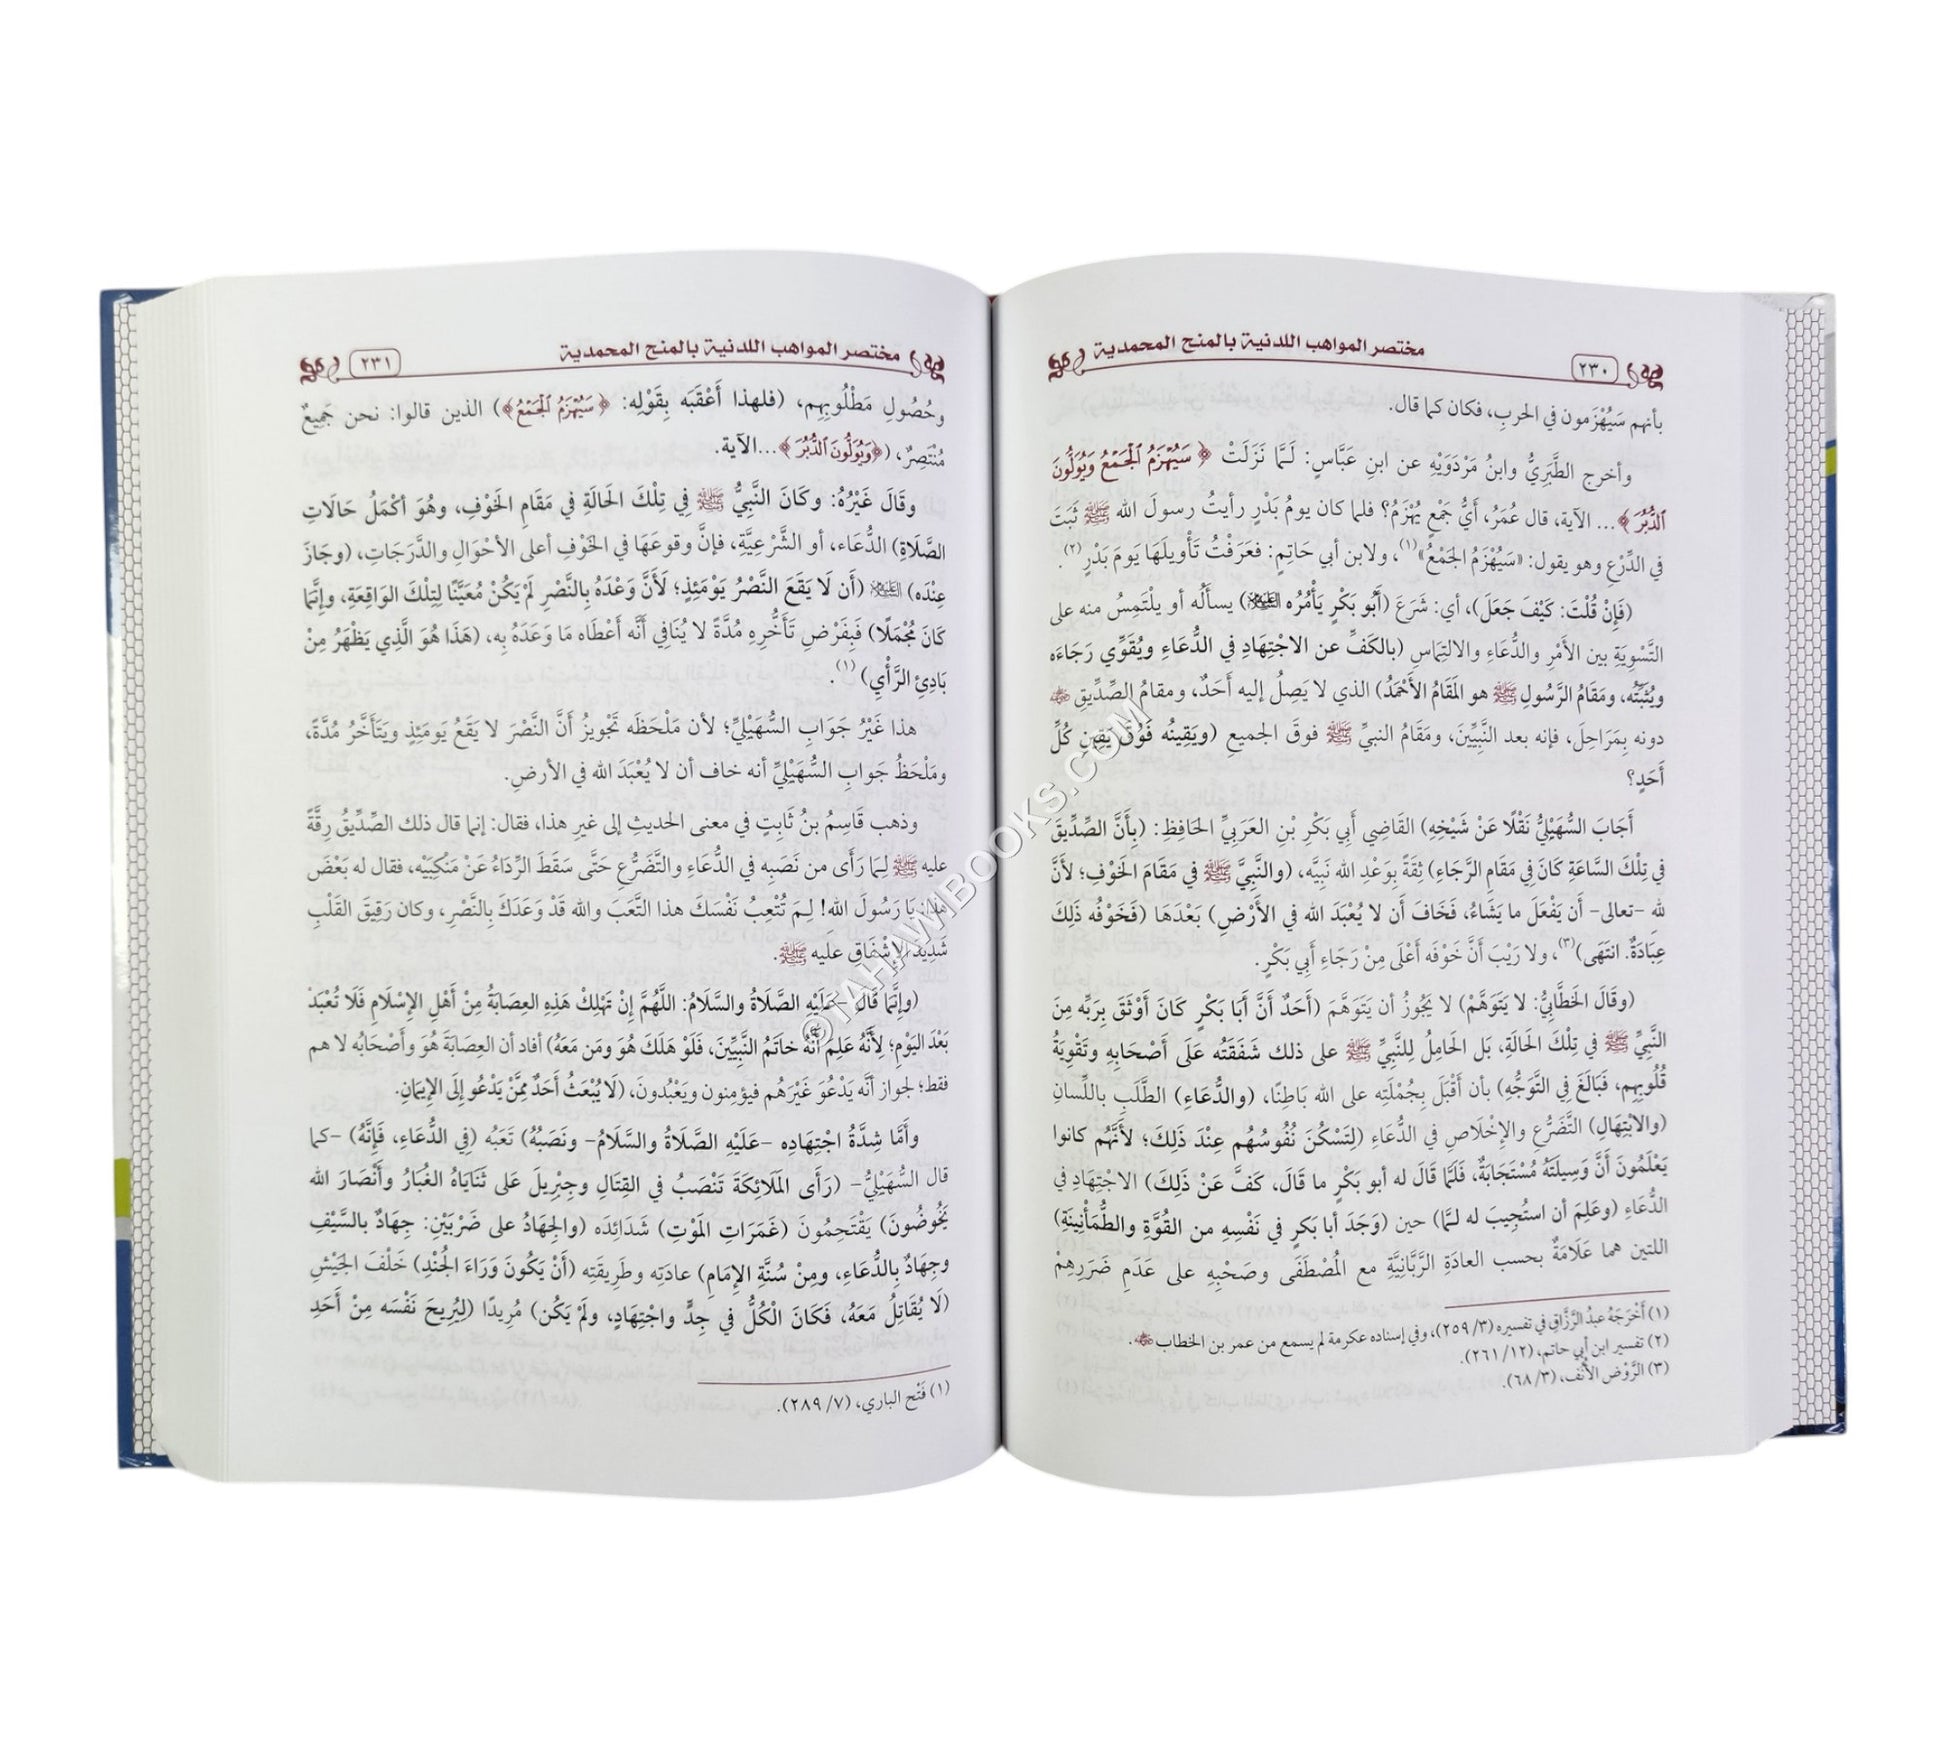 مختصر المواهب اللدنية بالمنح المحمدية
٢٣٠
بأنهم سَيُهْزَمون في الحربِ، فكان كما قال.
وأخرج الطَّبَرِيُّ وابنُ مَرْدَوَيْهِ عن ابنِ عَبَّاسٍ: لَـمَّا نَزَلَتْ ﴿سَيُهْزَمُ ٱلْجَمْعُ وَيُوَلُّونَ
ٱلدُّبُرَ﴾... الآية، قال عُمَرُ، أَيُّ جَمْعٍ يُهْزَمُ؟ فلما كان يومُ بَدْرٍ رأيتُ رسولَ الله ﷺ ثَبَتَ
في الدِّرْعِ وهو يقول: «سَيُهْزَمُ الجَمْعُ»(١)، ولابن أبي حَاتِمٍ: فعَرَفْتُ تَأْويلَهَا يَومَ بَدْرٍ(٢).
(فَإِنْ قُلْتَ: كَيْفَ جَعَلَ)، أي: شَرَعَ (أَبُو بَكْرٍ يَأْمُرُه ﵇) يسألُه أو يلْتَمِسُ منه على
التَّسْوِيَةِ بين الأَمْرِ والدُّعَاءِ والالتِمَاسِ (بالكَفِّ عن الاجْتِهَادِ في الدُّعَاءِ ويُقَوِّي رَجَاءَه
ويُثَبِّتُه، ومَقَامُ الرَّسُولِ ﷺ هو المَقَامُ الأَحْمَدُ) الذي لا يَصِلُ إليه أَحَدٌ، ومقامُ الصِّدِّيقِ ﵁
دونه بِمَرَاحِلَ، فإنه بعد النَّبِيِّينَ، ومَقَامُ النبيِّ ﷺ فوقَ الجميعِ (ويَقِينُه فَوْقَ يَقِينِ كُلِّ
أَحَدٍ؟
أَجَابَ السُّهَيْلِيُّ نَقْلًا عَنْ شَيْخِهِ) القَاضِي أَبِي بَكْرِ بْنِ العَرَبِيِّ الحَافِظِ: (بِأَنَّ الصِّدِّيقَ
في تِلْكَ السَّاعَةِ كَانَ فِي مَقَامِ الرَّجَاءِ) ثِقَةً بِوَعْدِ الله نَبِيَّه، (والنَّبِيَّ ﷺ في مَقَامِ الخَوْفِ؛ لأَنَّ
لله -تعالى- أَن يَفْعَلَ ما يَشَاءُ، فَخَافَ أَن لا يُعْبَدَ الله في الأَرْضِ) بَعْدَهَا (فَخَوْفُه ذَلِكَ
عِبَادَةٌ. انتَهَى)(٣)، ولا رَيْبَ أَنَّ خَوْفَه أَعْلَى مِنْ رَجَاءِ أَبِي بَكْرٍ.
(وقَالَ الخَطَّابِيُّ: لا يَتَوَهَّمْ) لا يَجُوزُ أن يَتَوَهَّمَ (أَحَدٌ أَنَّ أَبَا بَكْرٍ كَانَ أَوْثَقَ بِرَبِّه مِنَ
النَّبِيِّ ﷺ في تِلْكَ الحَالَةِ، بَل الحَامِلُ لِلنَّبِيِّ ﷺ على ذلك شَفَقَتُه عَلَى أَصْحَابِهِ وتَقْوِيَةُ
قُلُوبِهِم، فَبَالَغَ فِي التَّوَجُّهِ) بأن أَقْبَلَ بِجُمْلَتِه على الله بَاطِنًا، (والدُّعَاءِ) الطَّلَبِ باللِّسانِ
(والابْتِهَالِ) التَّضَرُّعِ والإِخْلَاصِ في الدُّعَاءِ (لِتَسْكُنَ نُفُوسُهم عِنْدَ ذَلِكَ؛ لأَنَّهُم كانوا
يَعْلَمُونَ أَنَّ وَسِيلَتَهُ مُسْتَجَابَةٌ، فَلَمَّا قَالَ له أبو بَكْرٍ ما قَالَ، كَفَّ عَنْ ذَلِكَ) الاجْتِهَادِ في
الدُّعَاءِ (وعَلِمَ أن استُجِيبَ له لـمَّا) حين (وَجَدَ أبا بَكرٍ في نَفْسِهِ من القُوَّةِ والطُّمَأْنِينَةِ)
اللتين هما عَلَامَةٌ بحسب العادَةِ الرَّبَّانِيَّةِ مع المُصْطَفَى وصَحْبِهِ على عَدَمِ ضَرَرِهِمْ
(١) أَخْرَجَهُ عبدُ الرَّزَّاقِ في تفسيره (٣/ ٢٥٩)، وفي إسناده عكرمة لم يسمع من عمر بن الخطاب ﵁.
(٢) تفسير ابن أبي حاتم، (١٢/ ٢٦١).
(٣) الرَّوْض الأُنُف، (٣/ ٦٨).
مختصر المواهب اللدنية بالمنح المحمدية
٢٣١
وحُصُولِ مَطْلُوبِهِم، (فلهذا أَعْقَبَه بِقَوْلِه: ﴿سَيُهْزَمُ ٱلْجَمْعُ﴾) الذين قالوا: نحن جَمِيعٌ
مُنْتَصِرٌ، (﴿وَيُوَلُّونَ ٱلدُّبُرَ﴾...الآية.
وقَالَ غَيْرُهُ: وكَانَ النَّبِيُّ ﷺ فِي تِلْكَ الحَالَةِ فِي مَقَامِ الخَوْفِ، وهُوَ أَكْمَلُ حَالَاتِ
الصَّلَاةِ) الدُّعَاء، أو الشَّرْعِيَّةِ، فإنَّ وقوعَهَا في الخَوْفِ أعلى الأحْوَالِ والدَّرَجَاتِ، (وجَازَ
عِنْدَه) ﵇ (أَن لَا يَقَعَ النَّصْرُ يَوْمَئِذٍ؛ لَأَنَّ وَعْدَهُ بِالنَّصْرِ لَمْ يَكُنْ مُعَيَّنًا لِتِلْكَ الوَاقِعَةِ، وإِنَّمَا
كَانَ مُجْمَلًا) فَبِفَرْضِ تَأَخُّرِهِ مُدَّةً لا يُنَافِي أَنَّه أَعْطَاه مَا وَعَدَهُ بِه، (هَذَا هُوَ الَّذِي يَظْهَرُ مِنْ
بَادِئِ الرَّأْيِ)(١).
هذا غَيْرُ جَوَابِ السُّهَيْلِيِّ؛ لأن مَلْحَظَه تَجْوِيزُ أَنَّ النَّصْرَ لا يَقَعُ يَومَئِذٍ ويَتَأَخَّرُ مُدَّةً،
ومَلْحَظُ جَوابِ السُّهَيْلِيِّ أنه خاف أن لا يُعْبَدَ الله في الأرضِ.
وذهب قَاسِمُ بنُ ثَابِتٍ في معنى الحديثِ إلى غيرِ هذا، فقال: إنما قال ذلك الصِّدِّيقُ رِقَّةً
عليه ﷺ لِمَا رَأَى من نَصَبِه في الدُّعَاءِ والتَّضَرُّعِ حَتَّى سَقَطَ الرِّدَاءُ عَنْ مَنْكِبَيْه، فقال له بَعْضَ
هذا: يَا رَسُولَ الله! لِمَ تُتْعِبُ نَفْسَكَ هذا التَّعَبَ والله قَدْ وَعَدَكَ بِالنَّصْرِ، وكان رَقِيقَ القَلْبِ
شَدِيدَ الإِشْفَاقِ عليه ﷺ.
(وإِنَّمَا قَالَ -عَلَيْهِ الصَّلَاةُ والسَّلَامُ: اللَّهُمَّ إِنْ تَهْلِكْ هَذِهِ العِصَابَةُ مِنْ أَهْلِ الإِسْلَامِ فَلَا تُعْبَدْ
بَعْدَ اليَوْمِ؛ لِأَنَّهُ عَلِمَ أَنَّهُ خاتَمُ النَّبِيِّينَ، فَلَوْ هَلَكَ هُوَ ومَن مَعَهُ) أفاد أن العِصَابَةَ هُوَ وأَصْحَابُه لا هم
فقط؛ لجواز أنَّه يَدْعُوَ غَيْرَهُم فيؤمنون ويَعْبُدونَ، (لَا يُبْعَثُ أَحَدٌ مِمَّنْ يَدْعُو إِلَى الإِيمَانِ.
وأَمَّا شِدَّةُ اجْتِهَادِه -عَلَيْهِ الصَّلَاةُ والسَّلَامُ- ونَصَبُهُ) تَعَبُه (فِي الدُّعَاءِ، فَإِنَّهُ) -كما
قال السُّهَيْلِيُّ- (رَأَى المَلَائِكَةَ تَنْصَبُ في القِتَالِ وجِبْرِيلَ عَلَى ثَنَايَاهُ الغُبَارُ وأَنْصَارَ الله
يَخُوضُونَ) يَقْتَحِمُونَ (غَمَرَاتِ المَوْتِ) شَدَائِدَه (والجِهَادُ على ضَرْبَيْنِ: جِهَادٌ بالسَّيْفِ
وجِهَادٌ بِالدُّعَاءِ، ومِنْ سُنَّةِ الإِمَامِ) عادَتِه وطَرِيقَتِه (أَنْ يَكُونَ وَرَاءَ الجُنْدِ) خَلْفَ الجَيْشِ
(لَا يُقَاتِلُ مَعَهُ، فَكَانَ الْكُلُّ فِي جِدٍّ واجْتِهَادٍ، ولَمْ يَكُن) مُرِيدًا (لِيُرِيحَ نَفْسَه مِنْ أَحَدِ
(١) فَتْح الباري، (٧/ ٢٨٩).
©TAHAWIBOOKS.COM